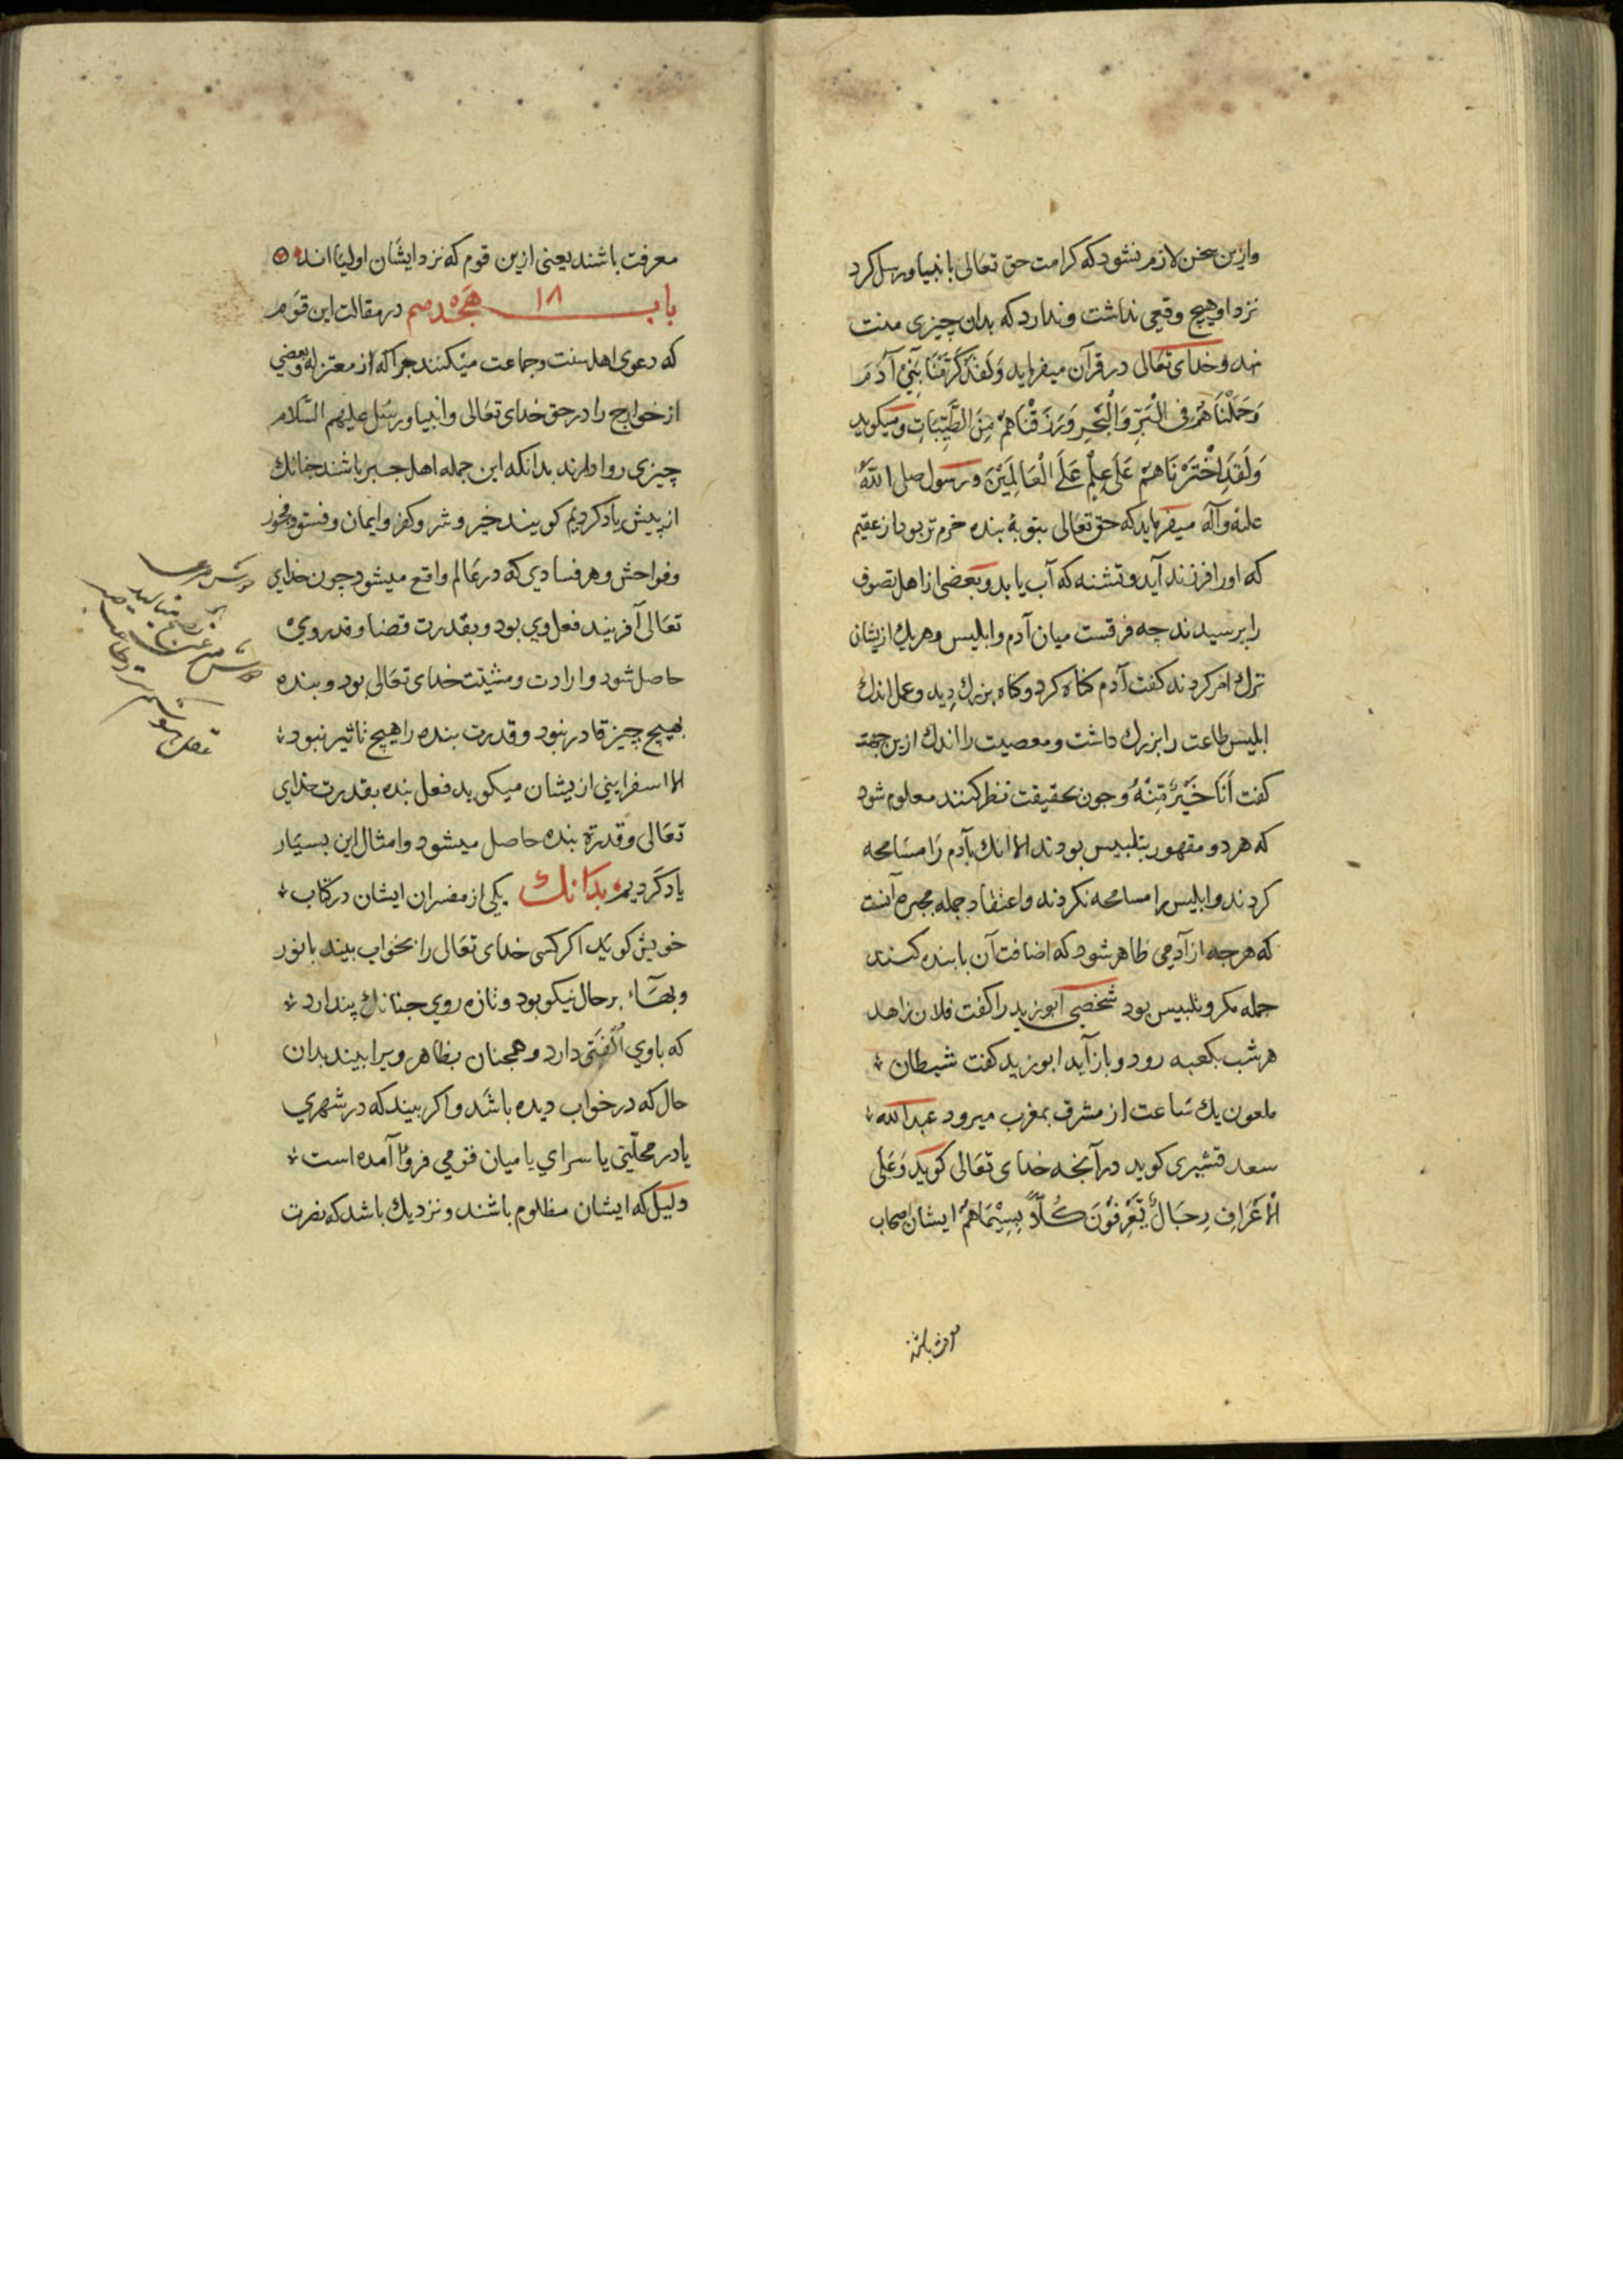 وازین سخن لازم نشود که کرامت حق تعالی با انبیا و رسل کرد
نزد او هیچ وقعی نداشت و ندارد که بدان چیزی منت
نهد و خدای تعالی در قرآن میفرماید وَلَقَدْ کَرَّمْنَا بَنِیْ آدَمَ
وَحَمَلْنَاهُمْ فِی الْبَرِّ وَالْبَحْرِ وَرَزَقْنَاهُمْ مِنَ الطَّیِّبَاتِ ومیکوید
وَلَقَدِ اخْتَرْنَاهُمْ عَلَی عِلْمٍ عَلَی الْعَالَمِیْنَ و رسول صلی اللّه
علیه وآله میفرماید که حق تعالی بتوبهٔ بنده خرم تر بود از عقیم
که او را فرزند آید و تشنه که آب یابد و بعضی از اهل تصوف
را پرسیدند چه فرقست میان آدم و ابلیس و هر یك ازیشان
ترك امر کردند کفت آدم کناه کرد و کناه بزرك دید و عمل اندك
ابلیس طاعت را بزرك داشت و معصیت را اندك ازین جهت
کفت أَنَا خَیْرٌ مِنْهُ و چون بحقیقت نظر کنند معلوم شود
که هر دو مقهور بتلبیس بودند الا انك بآدم را مسامحه
کردند و ابلیس را مسامحه نکردند و اعتقاد جمله مجبره آنست
که هرجه از آدمی ظاهر شود که اضافت آن با بنده کنند
جمله مکر و تلبیس بود شخصی ابو یزید را کفت فلان زاهد
هر شب بکعبه رود و باز آید ابو یزید کفت شیطان
ملعون یك ساعت از مشرق بمغرب میرود عبدالله
سعد قشیری کوید در آنجه خدای تعالی کوید وَعَلَی
الْأَعْرَافِ رِجَالٌ یَعْرِفُوْنَ کُلًّا بِسِیْمَاهُمْ ایشان اصحاب
معرفت باشند
معرفت باشند یعنی ازین قوم که نزد ایشان اولیا اند
باب ١٨ هجدهم در مقالت این قوم
که دعوی اهل سنت و جماعت میکنند جرا که از معتزله و بعضی
از خوارج را در حق خدای تعالی و انبیا و رسل علیهم السّلام
چیزی روا دارند بدانکه این جمله اهل جبر باشند جنانك
از پیش یاد کردیم کویند خیر و شر و کفر و ایمان و فسق و فجور
و فواحش و هر فسادی که در عالم واقع میشود چون خدای
تعالی آفریند فعل وی بود و بقدرت قضا و قدر وی
حاصل شود و ارادت و مشیّت خدای تعالی بود و بنده
بهیچ چیز قادر نبود و قدرت بنده را هیچ تاثیر نبود
الا اسفراینی ازیشان میکوید فعل بنده بقدرت خدای
تعالی و قدرة بنده حاصل میشود و امثال این بسیار
یاد کردیم بدانك یکی از مفسران ایشان در کتاب
خویش کوید اکر کسی خدای تعالی را بخواب بیند با نور
و بهآء بر حال نیکو بود و تازه روی جنانك پندارد
که با وی اُلفتی دارد و همجنان بظاهر ویرا بیند بدان
حال که در خواب دیده باشد و اکر بیند که در شهری
یا در محلّتی یا سرای یا میان قومی فروآ آمده است
دلیل که ایشان مظلوم باشند و نزدیك باشد که نصرت